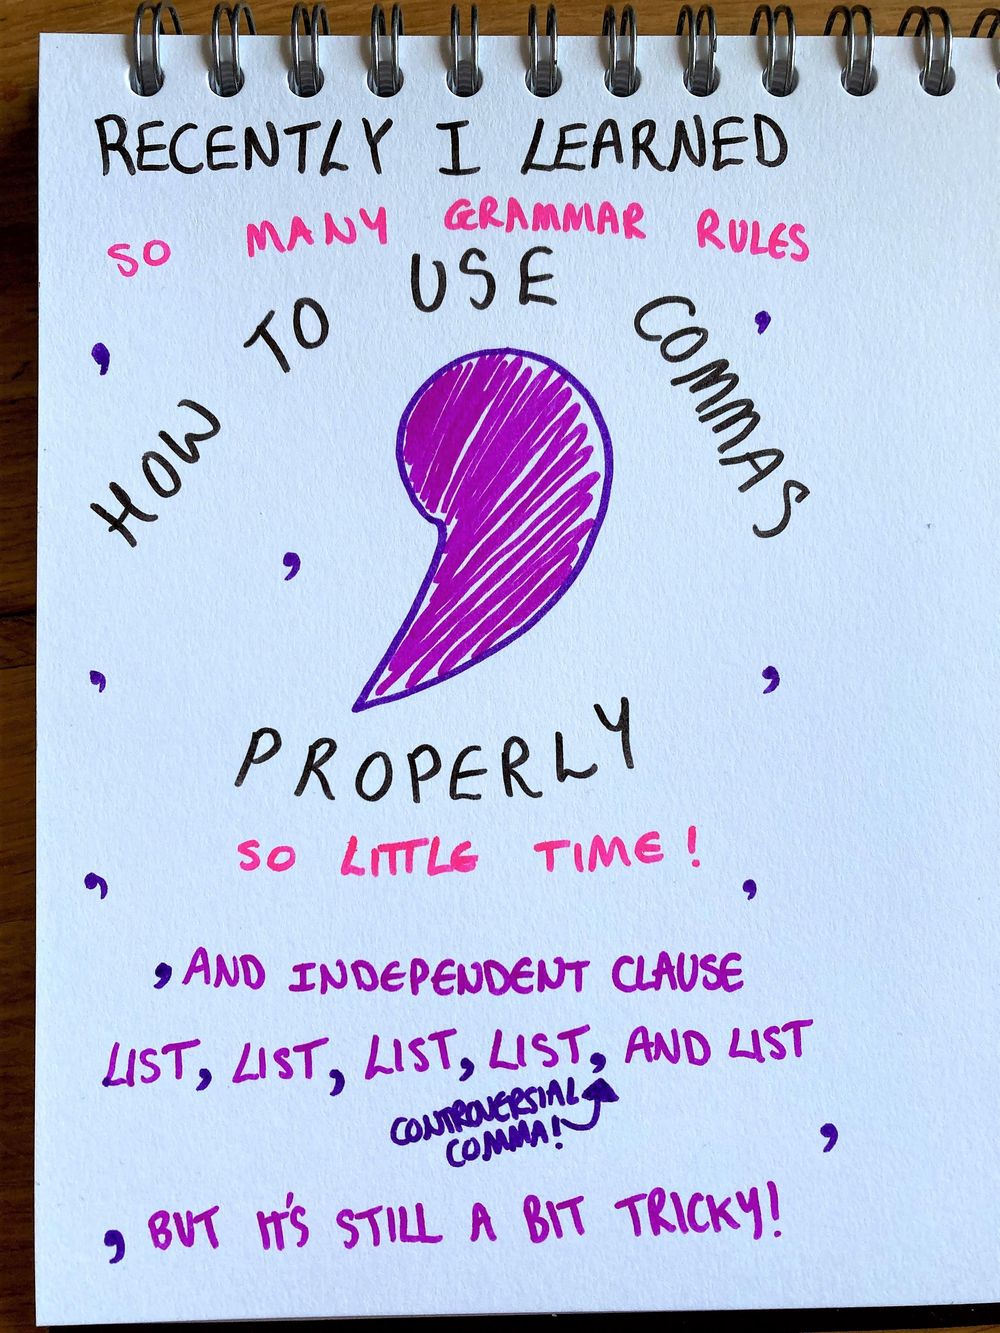 RECENTLY I LEARNED
SO MANY GRAMMAR RULES
HOW TO USE COMMAS
PROPERLY
SO LITTLE TIME!
, AND INDEPENDENT CLAUSE
LIST, LIST, LIST, LIST, AND LIST
CONTROVERSIAL
COMMA!
, BUT IT'S STILL A BIT TRICKY!